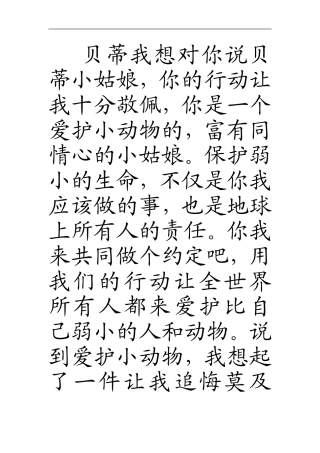 贝蒂我想对你说贝
蒂小姑娘，你的行动让
我十分敬佩，你是一个
爱护小动物的，富有同
情心的小姑娘。保护弱
小的生命，不仅是你我
应该做的事，也是地球
上所有人的责任。你我
来共同做个约定吧，用
我们的行动让全世界
所有人都来爱护比自
己弱小的人和动物。说
到爱护小动物，我想起
了一件让我追悔莫及